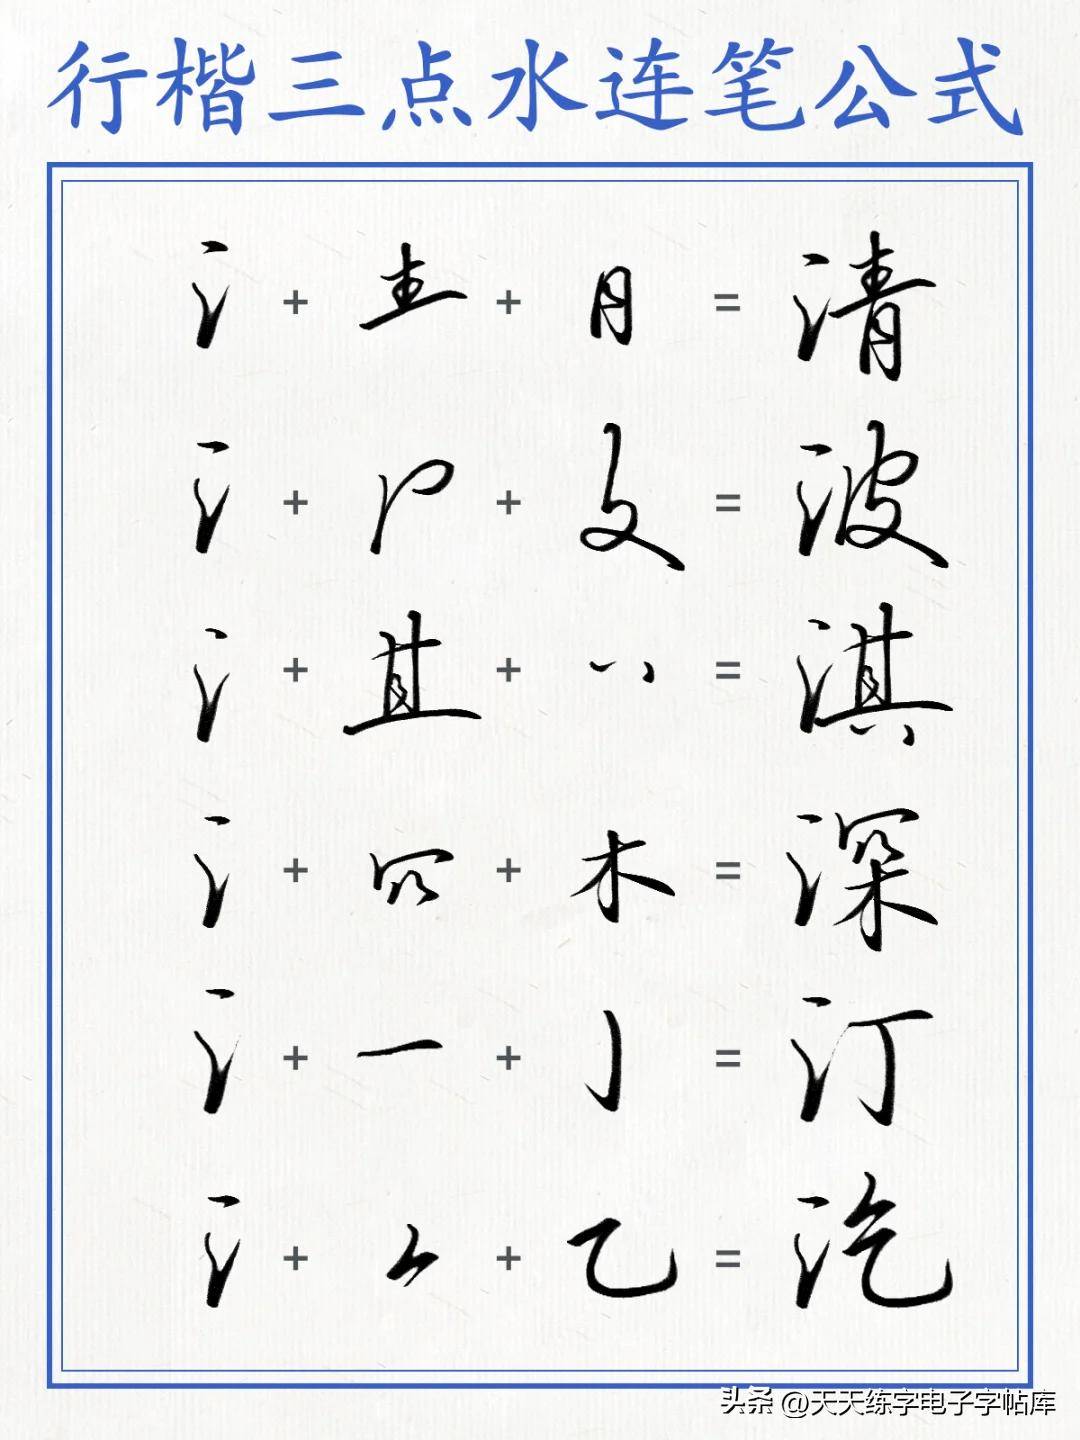 行楷三点水连笔公式
氵 + 龶 + 月 = 清
氵 + 𠂆 + 攵 = 波
氵 + 其 + 八 = 淇
氵 + 罙 + 木 = 深
氵 + 一 + 亅 = 汀
氵 + 𠂉 + 乙 = 汔
头条 @天天练字电子字帖库